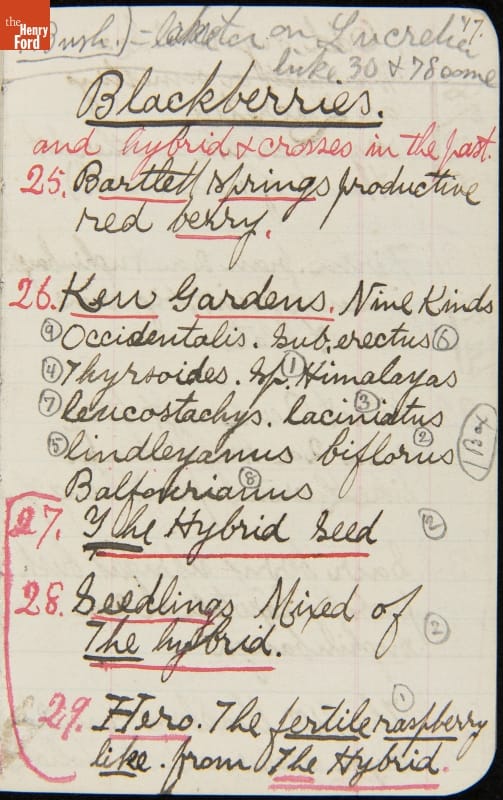 the
Henry
Ford
47.
Bush.) - later on Lucretia
like 30 & 78 some
Blackberries.
and hybrid & crosses in the past.
25. Bartlett Springs productive
red berry.
26. Kew Gardens. Nine Kinds
⑨ Occidentalis. Sub. erectus ⑥
④ Thyrsoides. Sp. ① Himalayas
⑦ leucostachys. laciniatus ③
⑤ lindleyanus biflorus ② 1 Box
Balfourianus ⑧
27. The Hybrid Seed ②
28. Seedlings Mixed of
The hybrid. ②
29. Hero. The fertile raspberry ①
like. from The Hybrid.